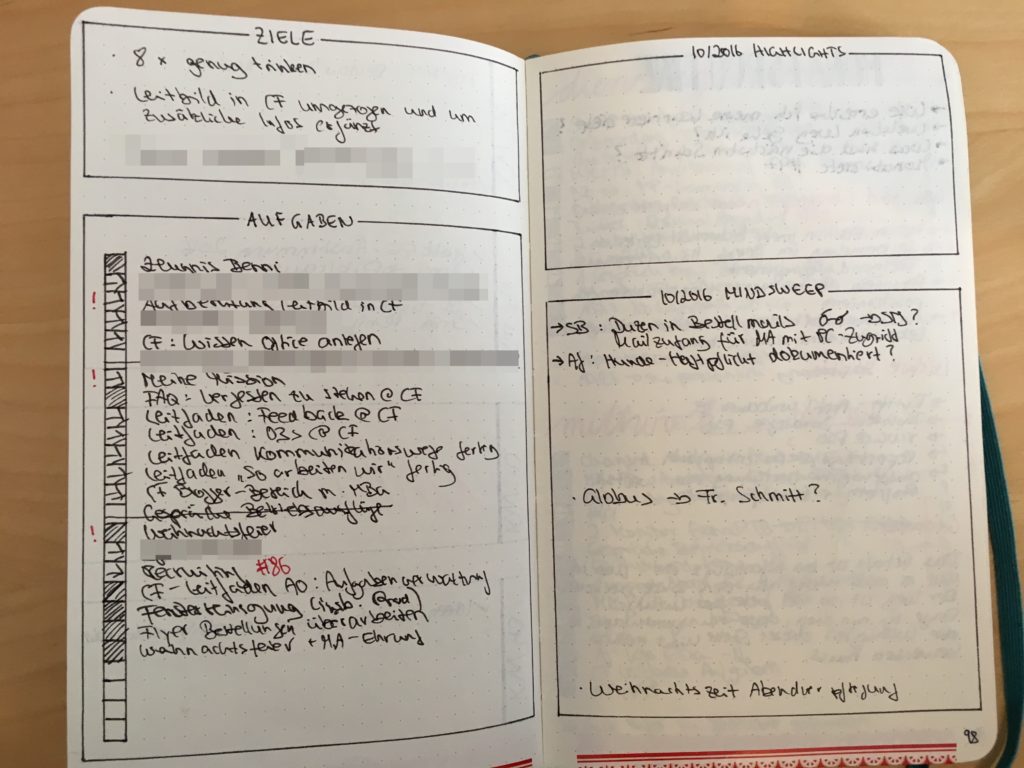 ZIELE
· 8 x genug trinken
· Leitbild in CF umgezogen und um
zusätzliche Infos ergänzt
AUFGABEN
Zeugnis Benni
!
Aufbereitung Leitbild in CF
CF: Wissen Office anlegen
!
Meine Mission
FAQ: Vergessen zu stehen @ CF
Leitfaden: Feedback @ CF
Leitfaden: OBs @ CF
Leitfaden Kommunikationswege fertig
Leitfaden "So arbeiten wir" fertig
CF Blogger-Bereich m. MBa
Gespräche Betriebsausflüge
!
Weihnachtsfeier
Recruiting #86
CF-Leitfaden AO: Aufgabenverwaltung
Fensterreinigung
Flyer Bestellungen überarbeiten
Weihnachtsfeier + MA-Ehrung
10/2016 HIGHLIGHTS
10/2016 MINDSWEEP
→ SB: Daten in Bestellmails
Mailzugang für MA mit PC-Zugriff
→ AJ: Hunde-Haftpflicht dokumentiert?
· Globus → Fr. Schmitt?
· Weihnachtszeit Abendverpflegung
98